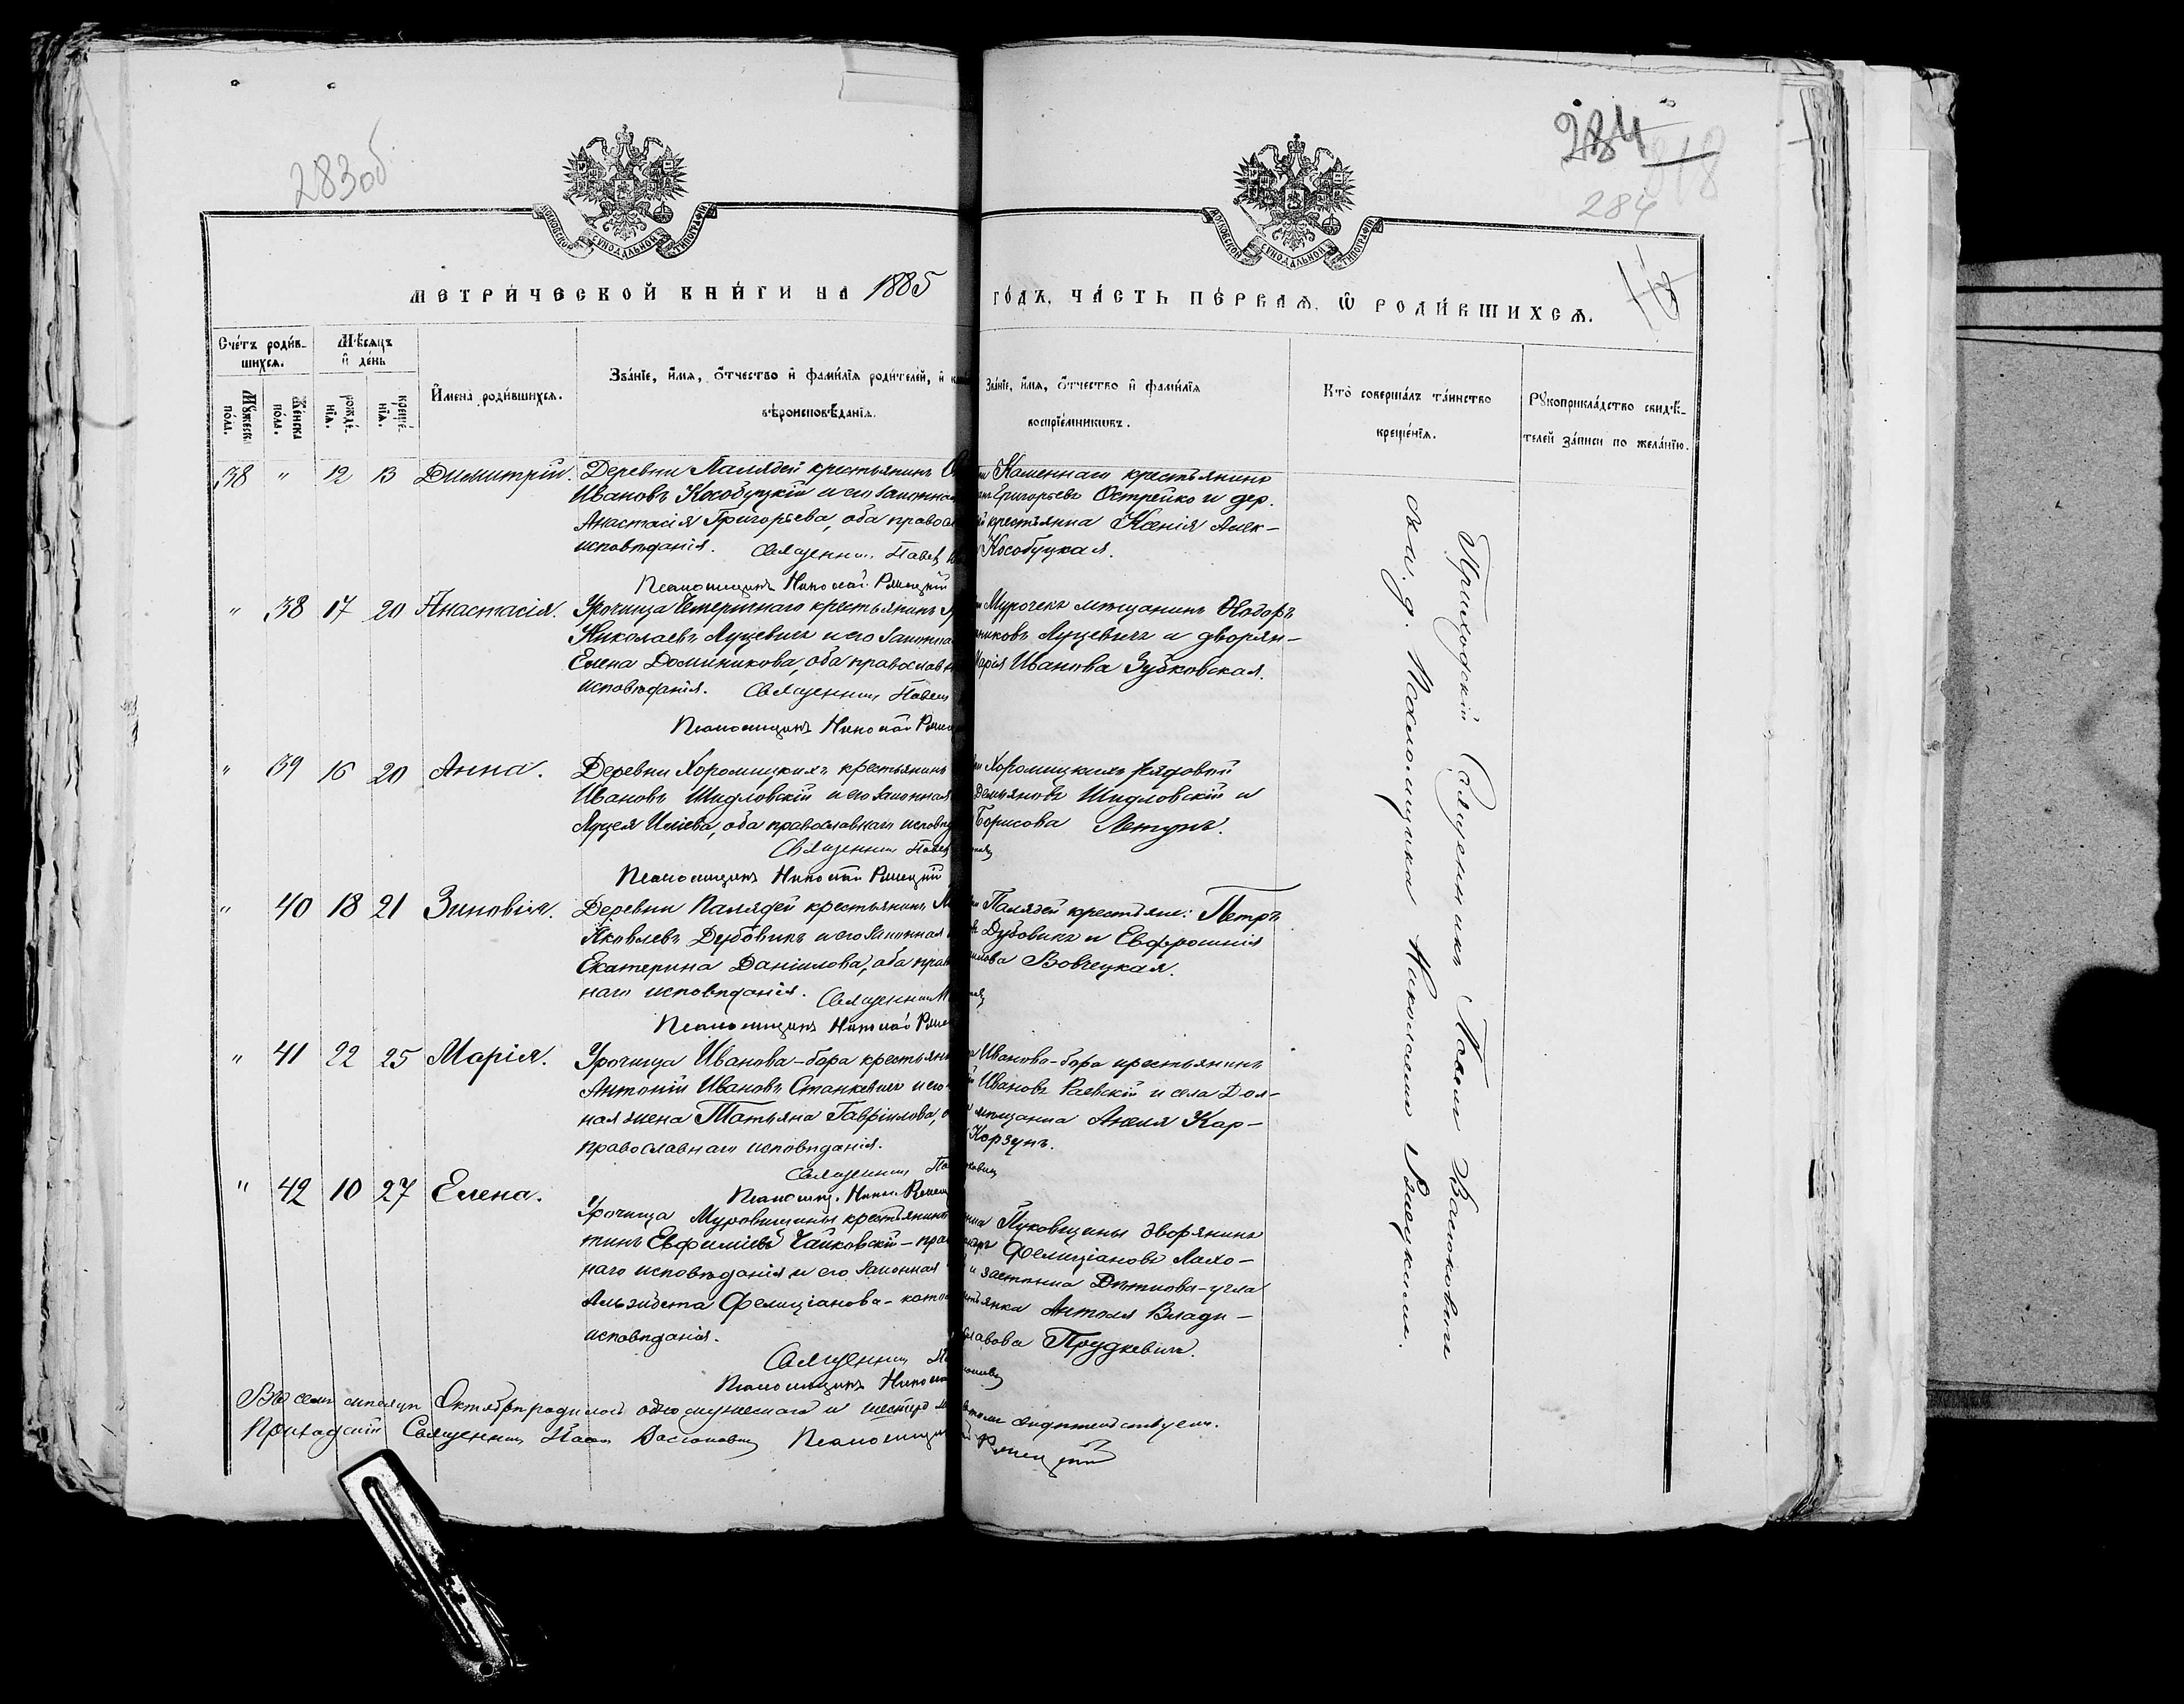 283 об
284
284
МОСКОВСКОЙ СѴНОДАЛЬНОЙ ТИПОГРАФІИ
МОСКОВСКОЙ СѴНОДАЛЬНОЙ ТИПОГРАФІИ
МЕТРИ́ЧЕСКОЙ КНИ́ГИ НА 1885
ГО́ДЪ, ЧА́СТЬ ПЕ́РВАѦ, Ѽ РОДИ́ВШИХСѦ.
Сче́тъ роди́в-
шихсѧ.
Мꙋжеска по́ла.
Женска по́ла.
Мѣ́сѧцъ
и҆ де́нь
рожде́-
нїѧ.
креще́-
нїѧ.
И҆мена̀ роди́вшихсѧ.
Зва́нїе, и҆́мѧ, ѻ҆́тчество и҆ фами́лїѧ роди́телей, и҆
вѣроисповѣ́данїѧ.
Зва́нїе, и҆́мѧ, ѻ҆́тчество и҆ фами́лїѧ
воспрїе́мникѡвъ.
Кто̀ соверша́лъ та́инство
креще́нїѧ.
Рꙋкоприкла́дство свидѣ́-
телей за́писи по жела́нїю.
38 " 12 13 Димитрій. Деревни Палядей крестьянинъ
Ивановъ Кособуцкій и его законная
Анастасія Григорьева, оба правосл
исповѣданія. Священникъ Павелъ
Псаломщикъ Николай Рямецкій
Каменнаго крестьянинъ
Григорьевъ Острейко и дер.
крестьянка Ксенія Алек-
Кособуцкая.
" 38 17 20 Анастасія. Урочища Четверичнаго крестьянинъ
Николаевъ Луцевичъ и его законная
Елена Доминикова, оба православн
исповѣданія. Священникъ Павелъ
Псаломщикъ Николай
Мурочекъ мѣщанинъ Ѳеодоръ
Луцевичъ и дворян-
Марія Иванова Зубковская.
" 39 16 20 Анна. Деревни Хоромицкихъ крестьянинъ
Ивановъ Шидловскій и его законная
Луцея Иліева, оба православнаго исповѣд
Священникъ Павелъ
Псаломщикъ Николай Рямецкій
Хоромицкихъ рядовый
Демьяновъ Шидловскій и
Борисова Летунъ.
" 40 18 21 Зиновія. Деревни Палядей крестьянинъ
Яковлевъ Дубовикъ и его законная
Екатерина Даніилова, оба прав
наго исповѣданія. Священникъ
Псаломщикъ Николай
Палядей крестьяне: Петръ
Дубовикъ и Евфросинія
Вовчецкая.
" 41 22 25 Марія. Урочища Иванова-бора крестьянинъ
Антоній Ивановъ Станкевичъ и его
ная жена Татьяна Гавріилова,
православнаго исповѣданія.
Священникъ
Псаломщ. Никол.
Иванова-бора крестьянинъ
Ивановъ Раевскій и села Дол-
мѣщанка Анеля Кар-
Корзунъ.
" 42 10 27 Елена.
Урочища Муровщины крестьянинъ
тинъ Евфиміевъ Чайковскій - прав
наго исповѣданія и его законная
Альжбета Фелиціанова - като
исповѣданія.
Священникъ
Псаломщикъ Николай
Пуковщины дворянинъ
Фелиціановъ Лахо-
и застѣнка Дѣткова-угла
Антоля Влади-
славова Прудкевичъ.
Въ семъ мѣсяцѣ Октябрѣ родилось одно мужескаго и шестеро свидѣтельствуемъ.
Приходскій Священникъ Павелъ Васюковичъ Псаломщикъ Рямецкій
Приходскій Священникъ Павелъ Васюковичъ
съ и. д. Псаломщика Николаемъ Рямецкимъ.